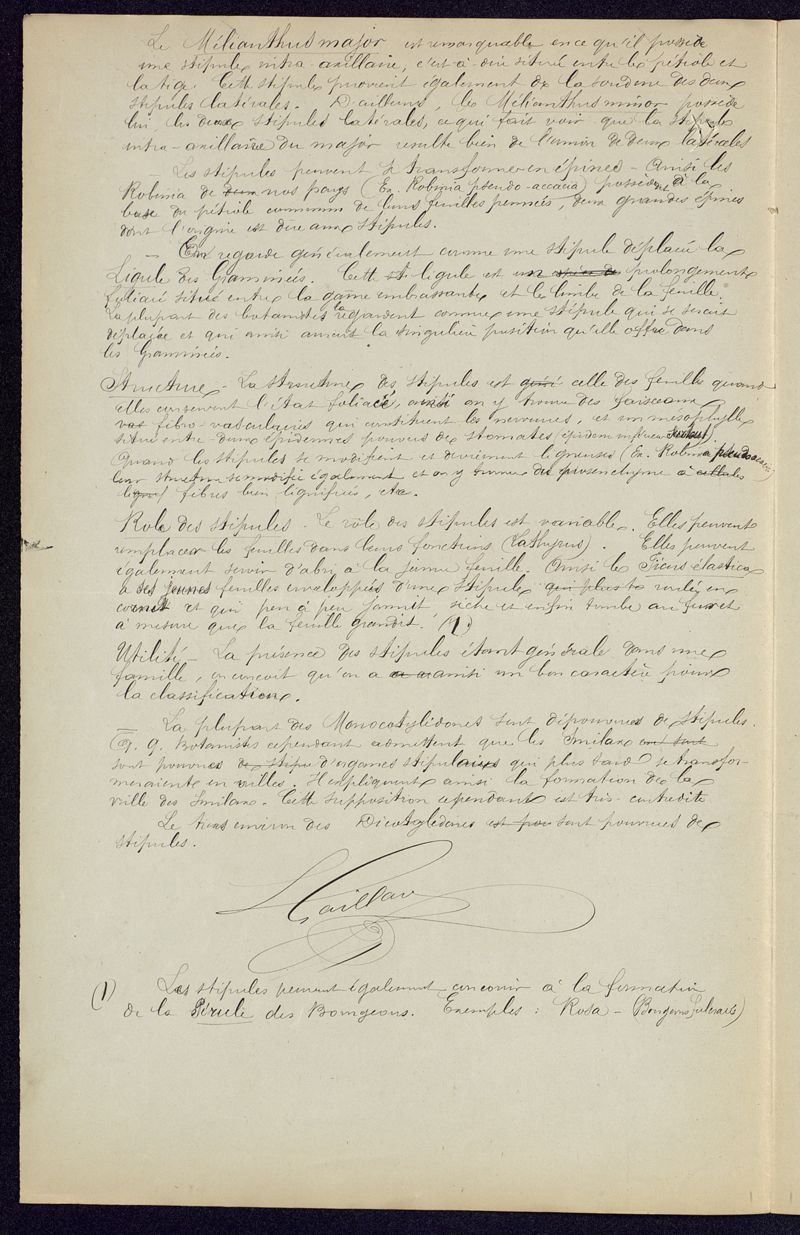 Le Mélianthus major est remarquable en ce qu'il possède
une stipule intra-axillaire, c'est-à-dire située entre le pétiole et
la tige. Cette stipule provient également de la soudure des deux
stipules latérales. D'ailleurs, le Mélianthus minor possède
lui, les deux stipules latérales, ce qui fait voir que la stipule
intra-axillaire du major résulte bien de l'union de deux latérales
- Les stipules peuvent se transformer en épines - Ainsi les
Robinia de nos pays (Ex. Robinia pseudo-accacia) possèdent à la
base du pétiole commun de leurs feuilles pennées, deux grandes épines
dont l'origine est due aux stipules.
- On regarde généralement comme une stipule déplacée la
Ligule des Graminées. Cette ligule est un prolongement
foliacé situé entre la gaine embrassante et le limbe de la feuille.
La plupart des botanistes la regardent comme une stipule qui se serait
déplacée et qui ainsi aurait la singulière position qu'elle offre dans
les Graminées.
Structure - La structure des stipules est celle des feuilles quand
elles conservent l'état foliacé, ainsi on y trouve des faisceaux
fibro-vasculaires qui constituent les nervures, et un mésophylle
situé entre deux épidermes pourvus de stomates (épiderme inférieur surtout)
Quand les stipules se modifient et deviennent ligneuses (Ex. Robinia pseudo acacia)
leur structure se modifie également et on y trouve du prosenchyme à cellules
fibres bien lignifiées, etc.
Role des stipules - Le rôle des stipules est variable. Elles peuvent
remplacer les feuilles dans leurs fonctions (Lathyrus). Elles peuvent
également servir d'abri à la jeune feuille. Ainsi le Ficus élastica
a ses jeunes feuilles enveloppées d'une stipule roulée en
cornet et qui peu à peu jaunit, sèche et enfin tombe au fur et
à mesure que la feuille grandit. (1)
Utilité - La présence des stipules étant générale dans une
famille, on conçoit qu'on a ainsi un bon caractère pour
la classification.
- La plupart des Monocotylédones sont dépourvues de stipules.
q.q. Botanistes cependant admettent que les Smilax
sont pourvus d'organes stipulaires qui plus tard se transfor-
meraient en vrilles. Il expliquent ainsi la formation de la
vrille des Smilax. Cette supposition cependant est très contredite
Le tiers environ des Dicotylédones sont pourvues de
stipules.
L Gaillard
(1) Les stipules peuvent également concourir à la formation
de la Pérule des Bourgeons. Exemples : Rosa - (Bourgeons fulcracés)